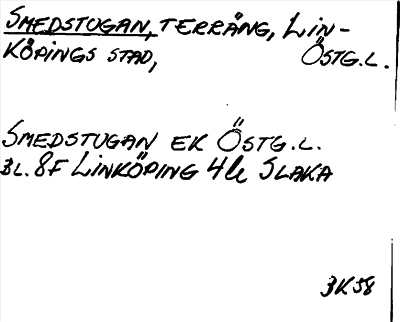 SMEDSTUGAN, TERRÄNG, LIN-
KÖPINGS STAD, ÖSTG.L.
SMEDSTUGAN EK ÖSTG.L.
BL. 8F LINKÖPING 4b SLAKA
BK58